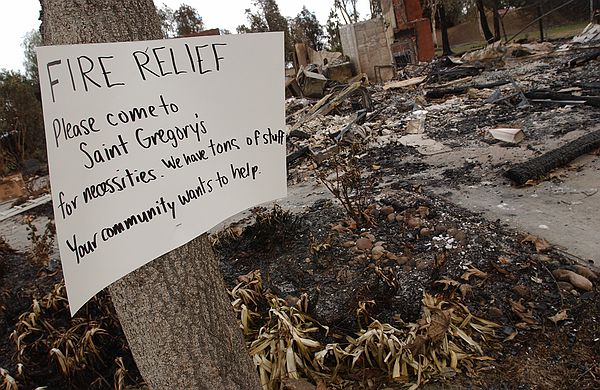 FIRE RELIEF
Please come to
Saint Gregory's
for necessities. We have tons of stuff
Your community wants to help.